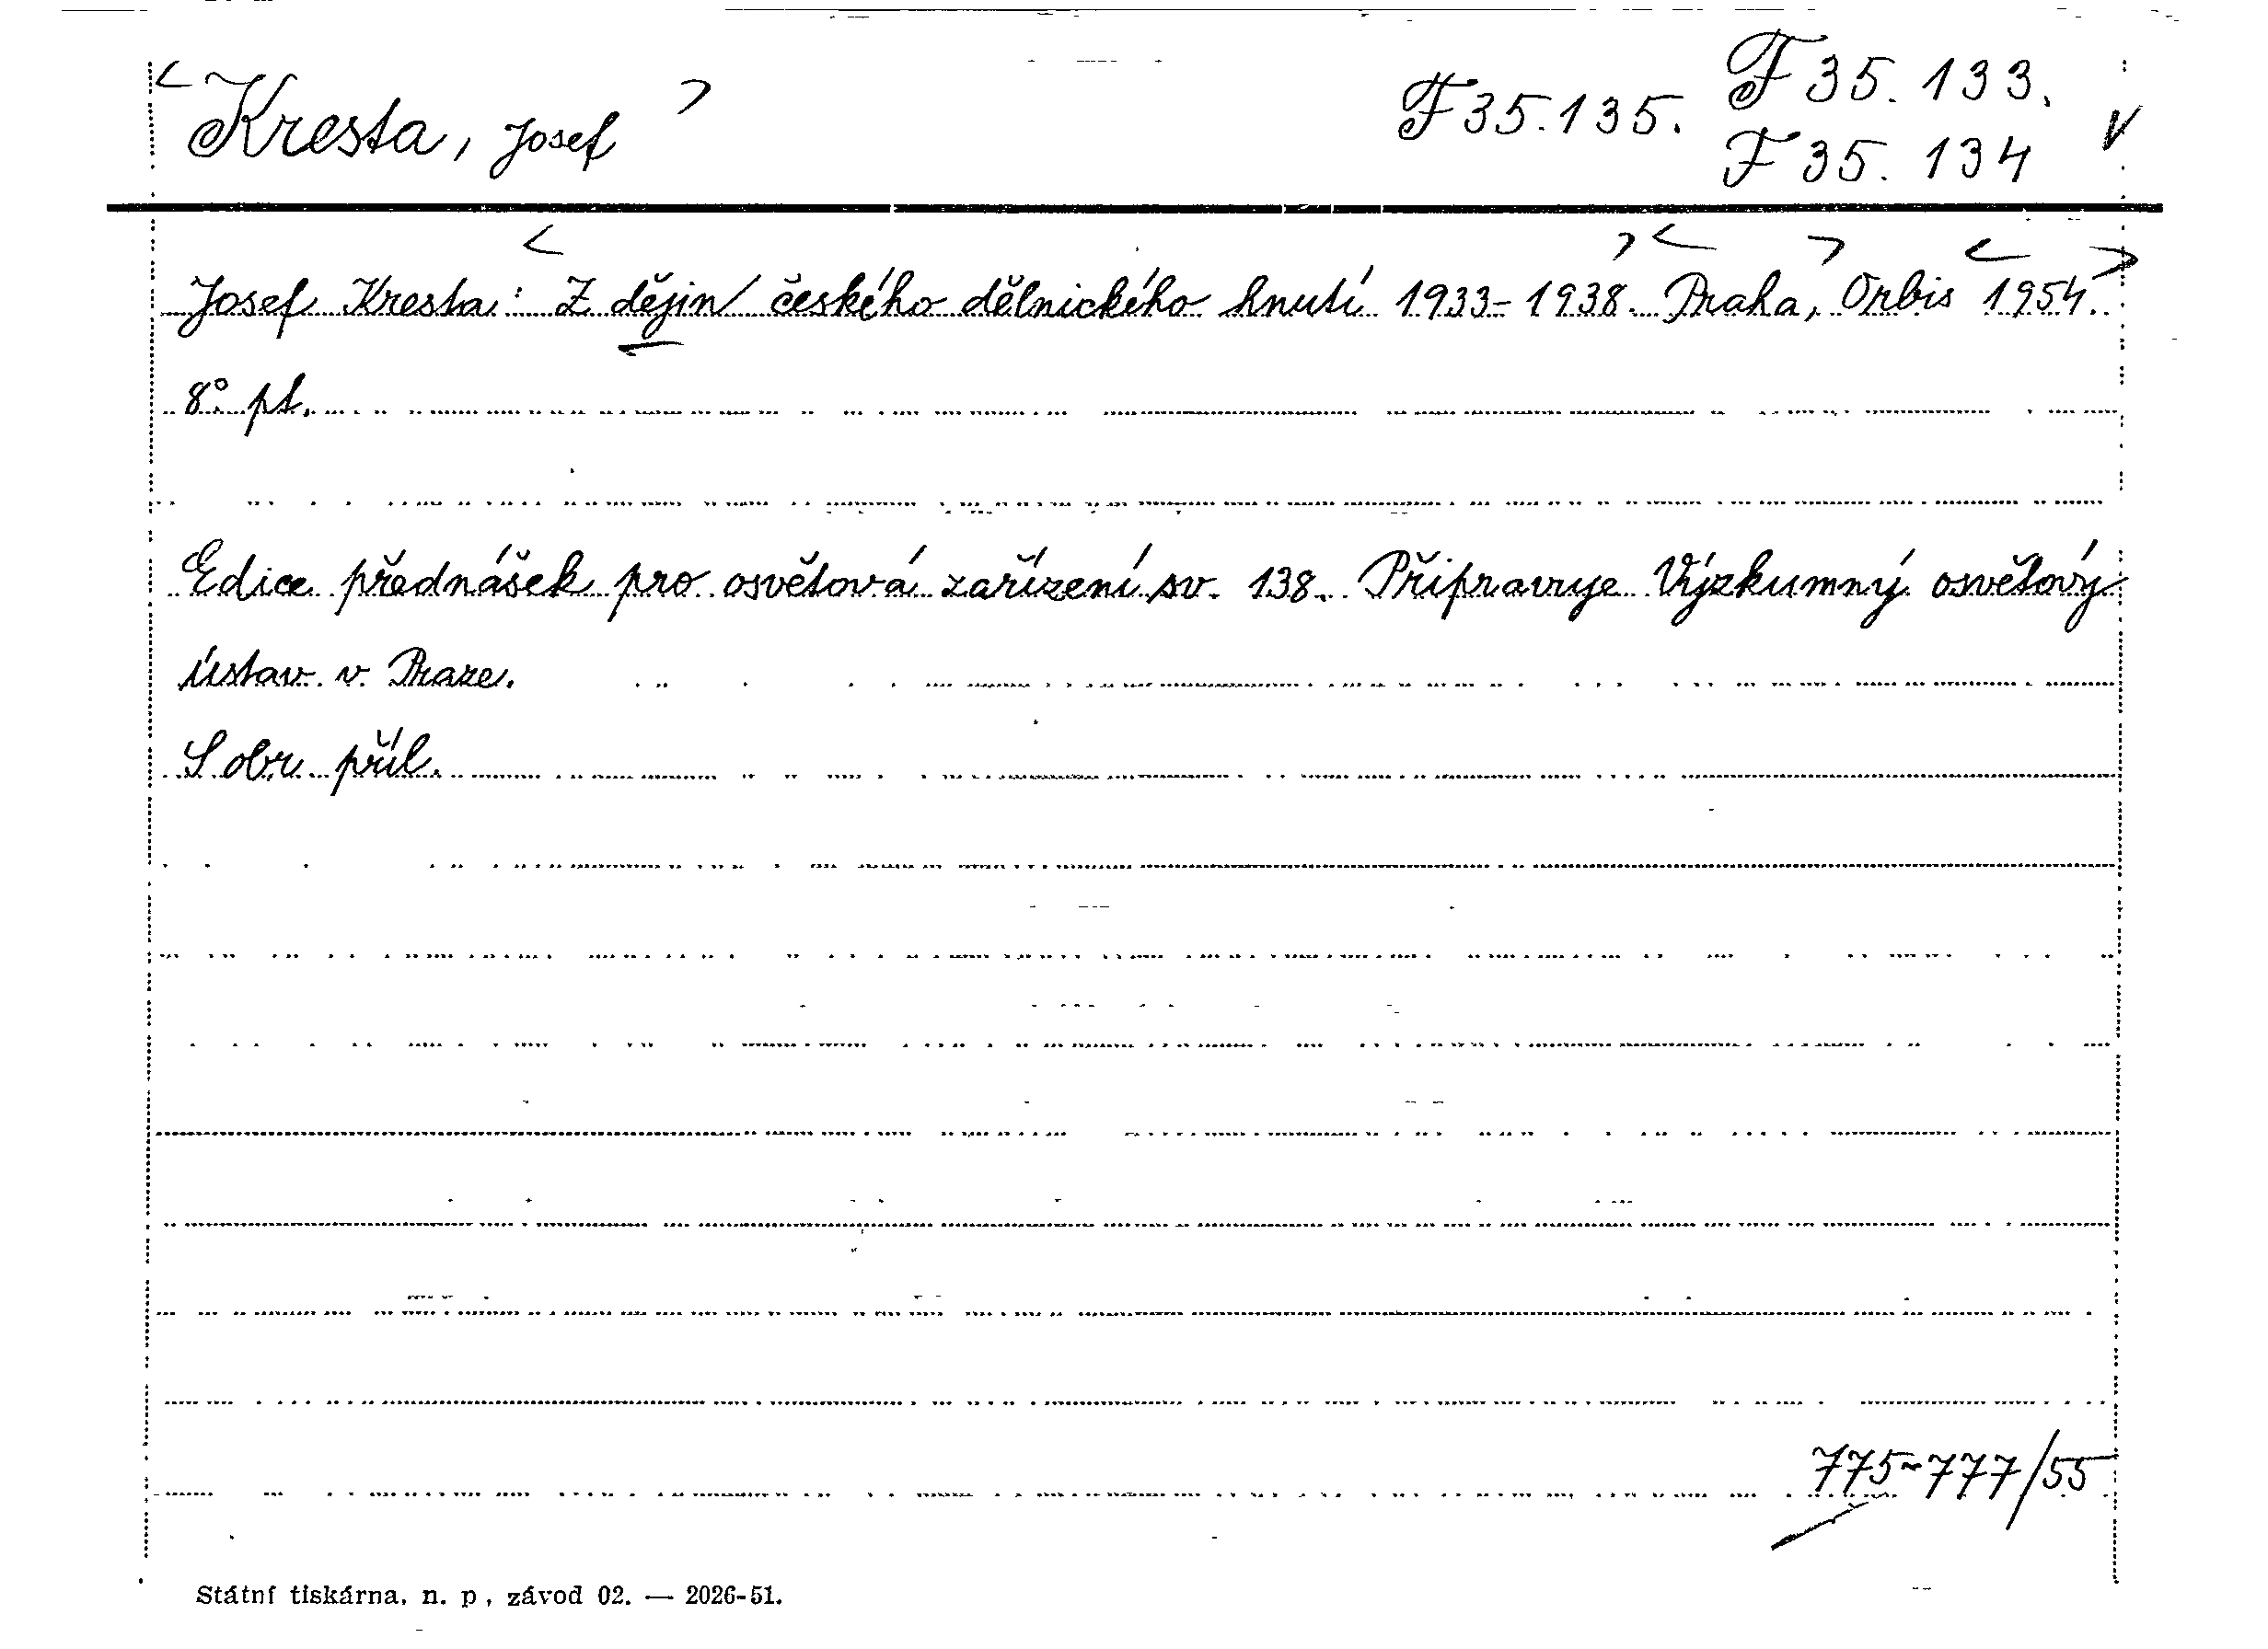 Kresta, Josef
F 35.135.
F 35.133.
F 35.134
Josef Kresta: Z dějin českého dělnického hnutí 1933-1938. Praha, Orbis 1954.
8° pt.
Edice přednášek pro osvětová zařízení sv. 138. Připravuje Výzkumný osvětový
ústav v Praze.
S obr. příl.
775-777/55
Státní tiskárna, n. p., závod 02. — 2026-51.